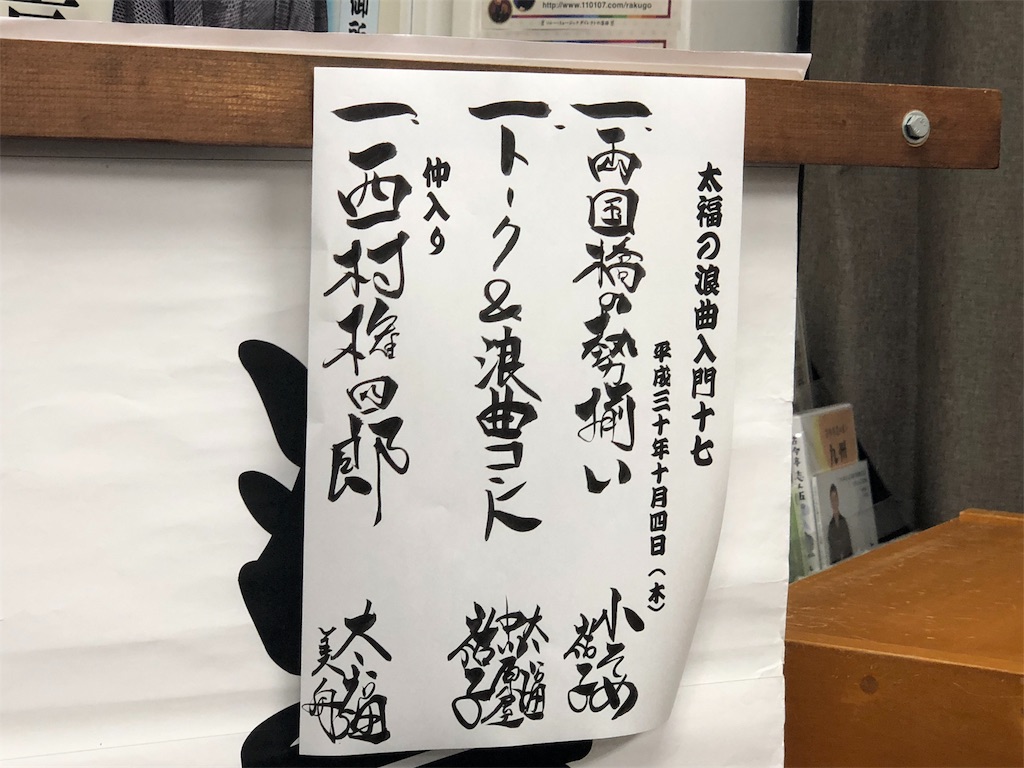 http://www.110107.com/rakugo
御所
太福の浪曲入門十七
平成三十年十月四日(木)
一、両国橋の勢揃い 小そめ
祐子
一、トーク&浪曲コント 太福
祐子
仲入り
一、西村権四郎 太福
美舟
九州